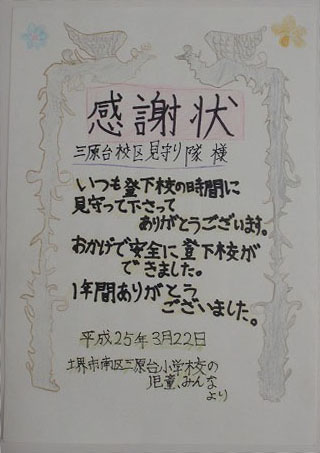 感謝状
三原台校区見守り隊 様
いつも登下校の時間に
見守って下さって
ありがとうございます。
おかげで安全に登下校が
できました。
1年間ありがとう
ございました。
平成25年3月22日
堺市南区三原台小学校の
児童、みんな
より